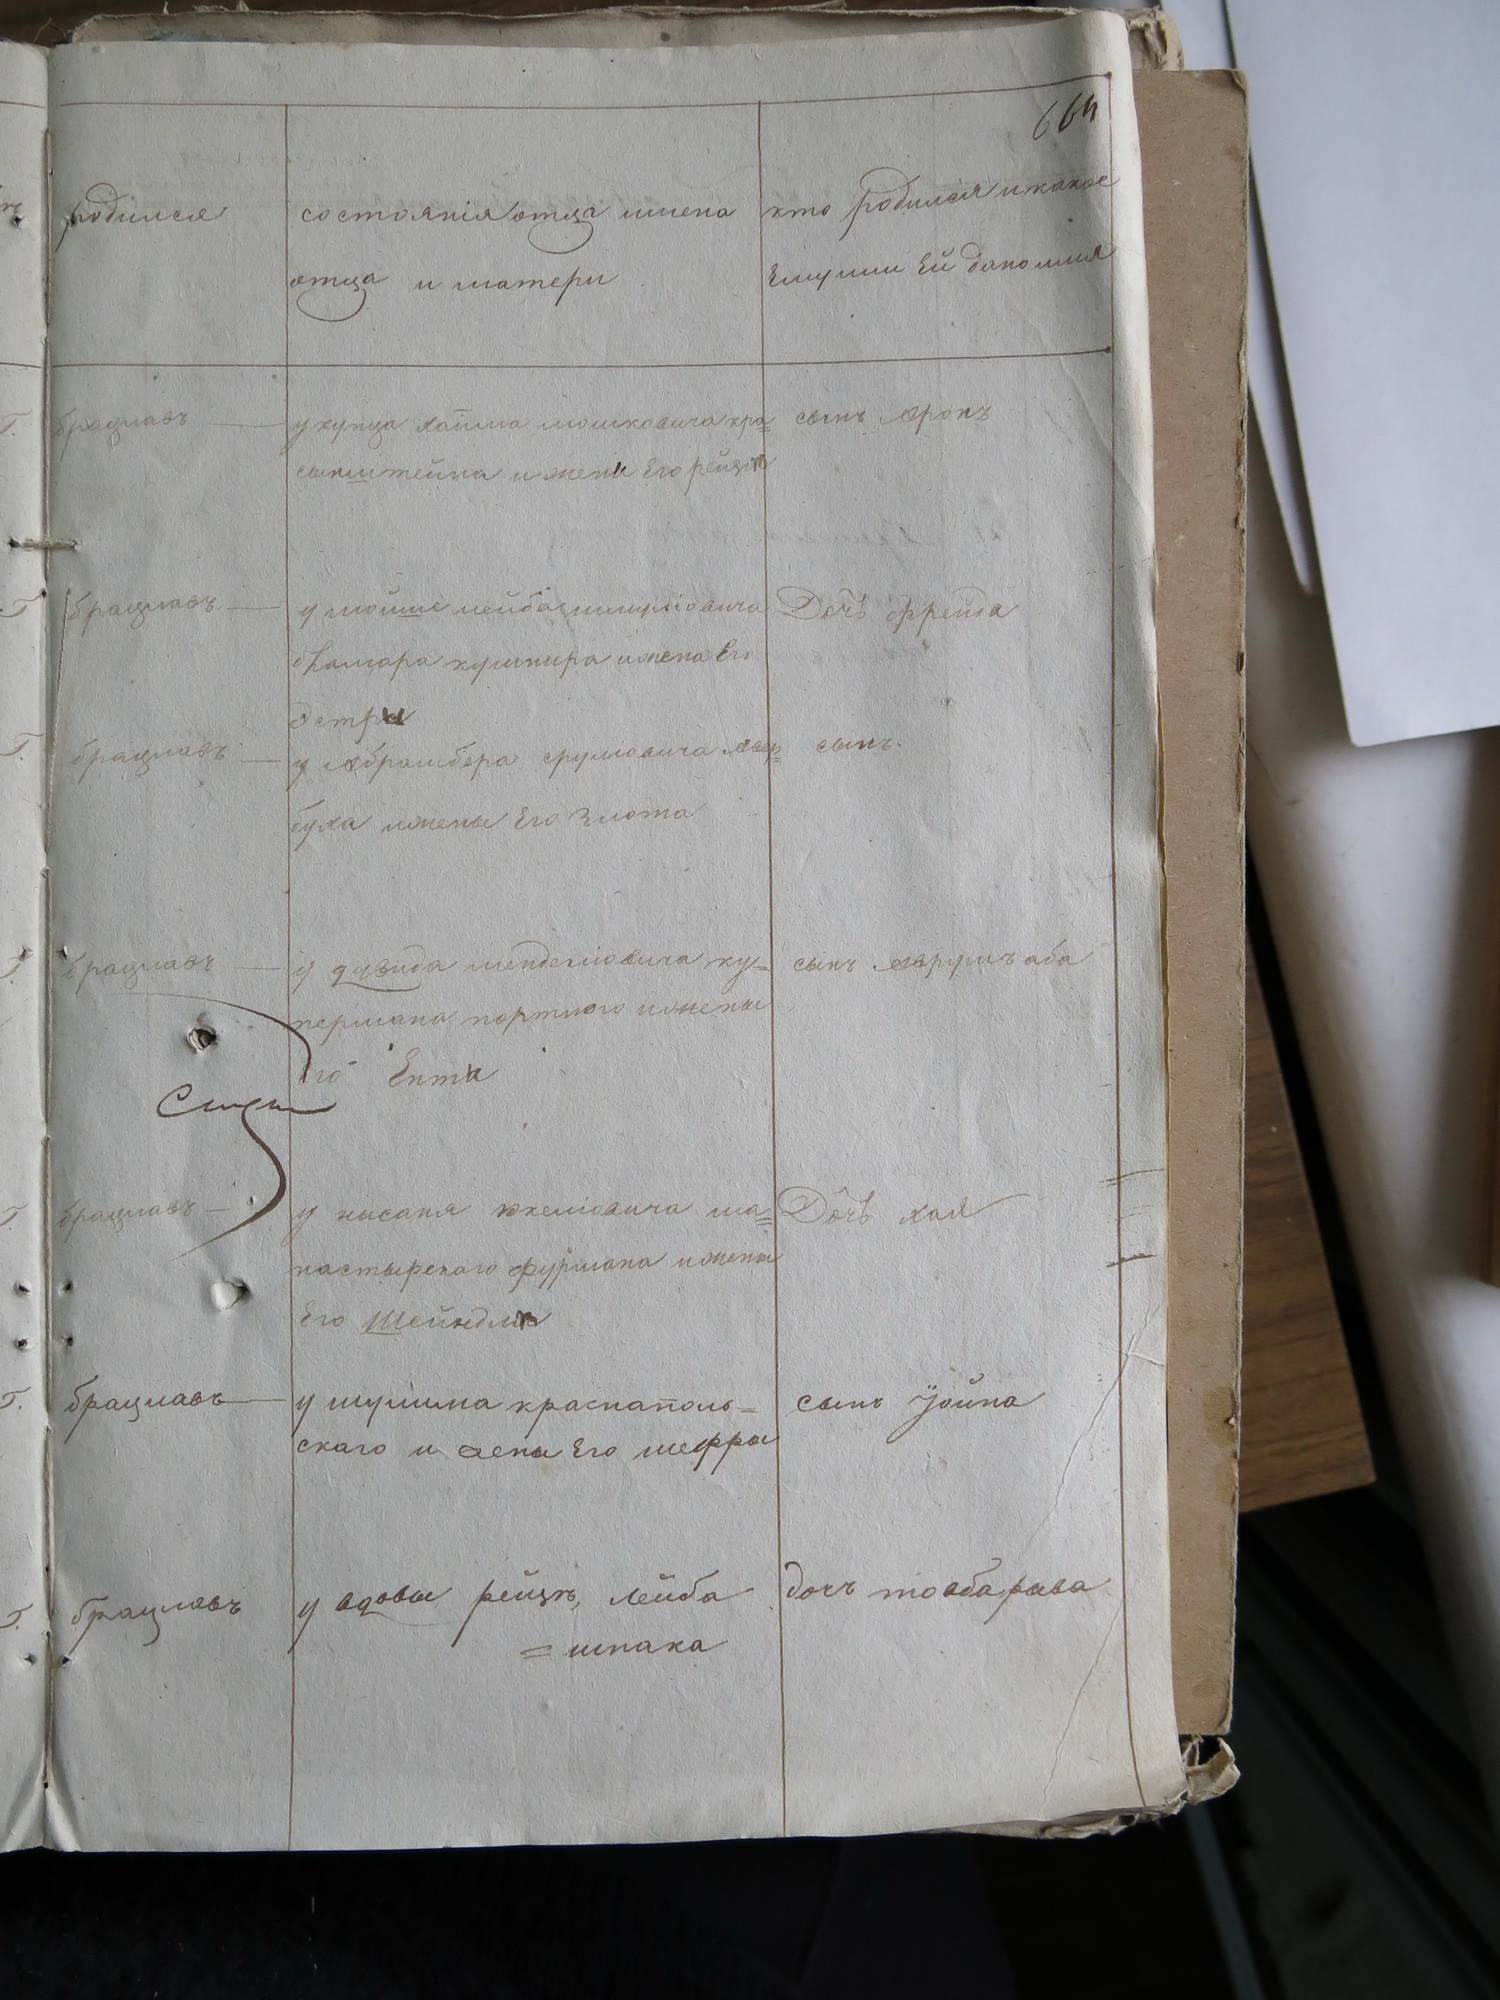 664
родился
состоянія отца имена
отца и матери
кто родился и какое
Ему или Ей дано имя
брацлавъ
у купца хаима мошковича кра=
сынштейна и жены Его рейци
сынъ аронъ
брацлавъ
у мойше лейба шмулiовича
кушнира и жена Его
Эстры
Дочь фрейда
брацлавъ
у абрамбера срулiовича авер=
буха и жены Его Злота
сынъ.
брацлавъ
у давида менделiовича ку=
пермана портного и жены
Его Ента
сынъ аврумъ аба
брацлавъ
у нисаня хкелiовича ма=
настырскаго фурмана и жены
Его Шейндли
Дочь хая
брацлавъ
у шулима краснаполь=
скаго и жены Его шефры
сынъ Іойна
брацлавъ
у вдовы рейзи, лейба
= шпака
дочъ товба рива